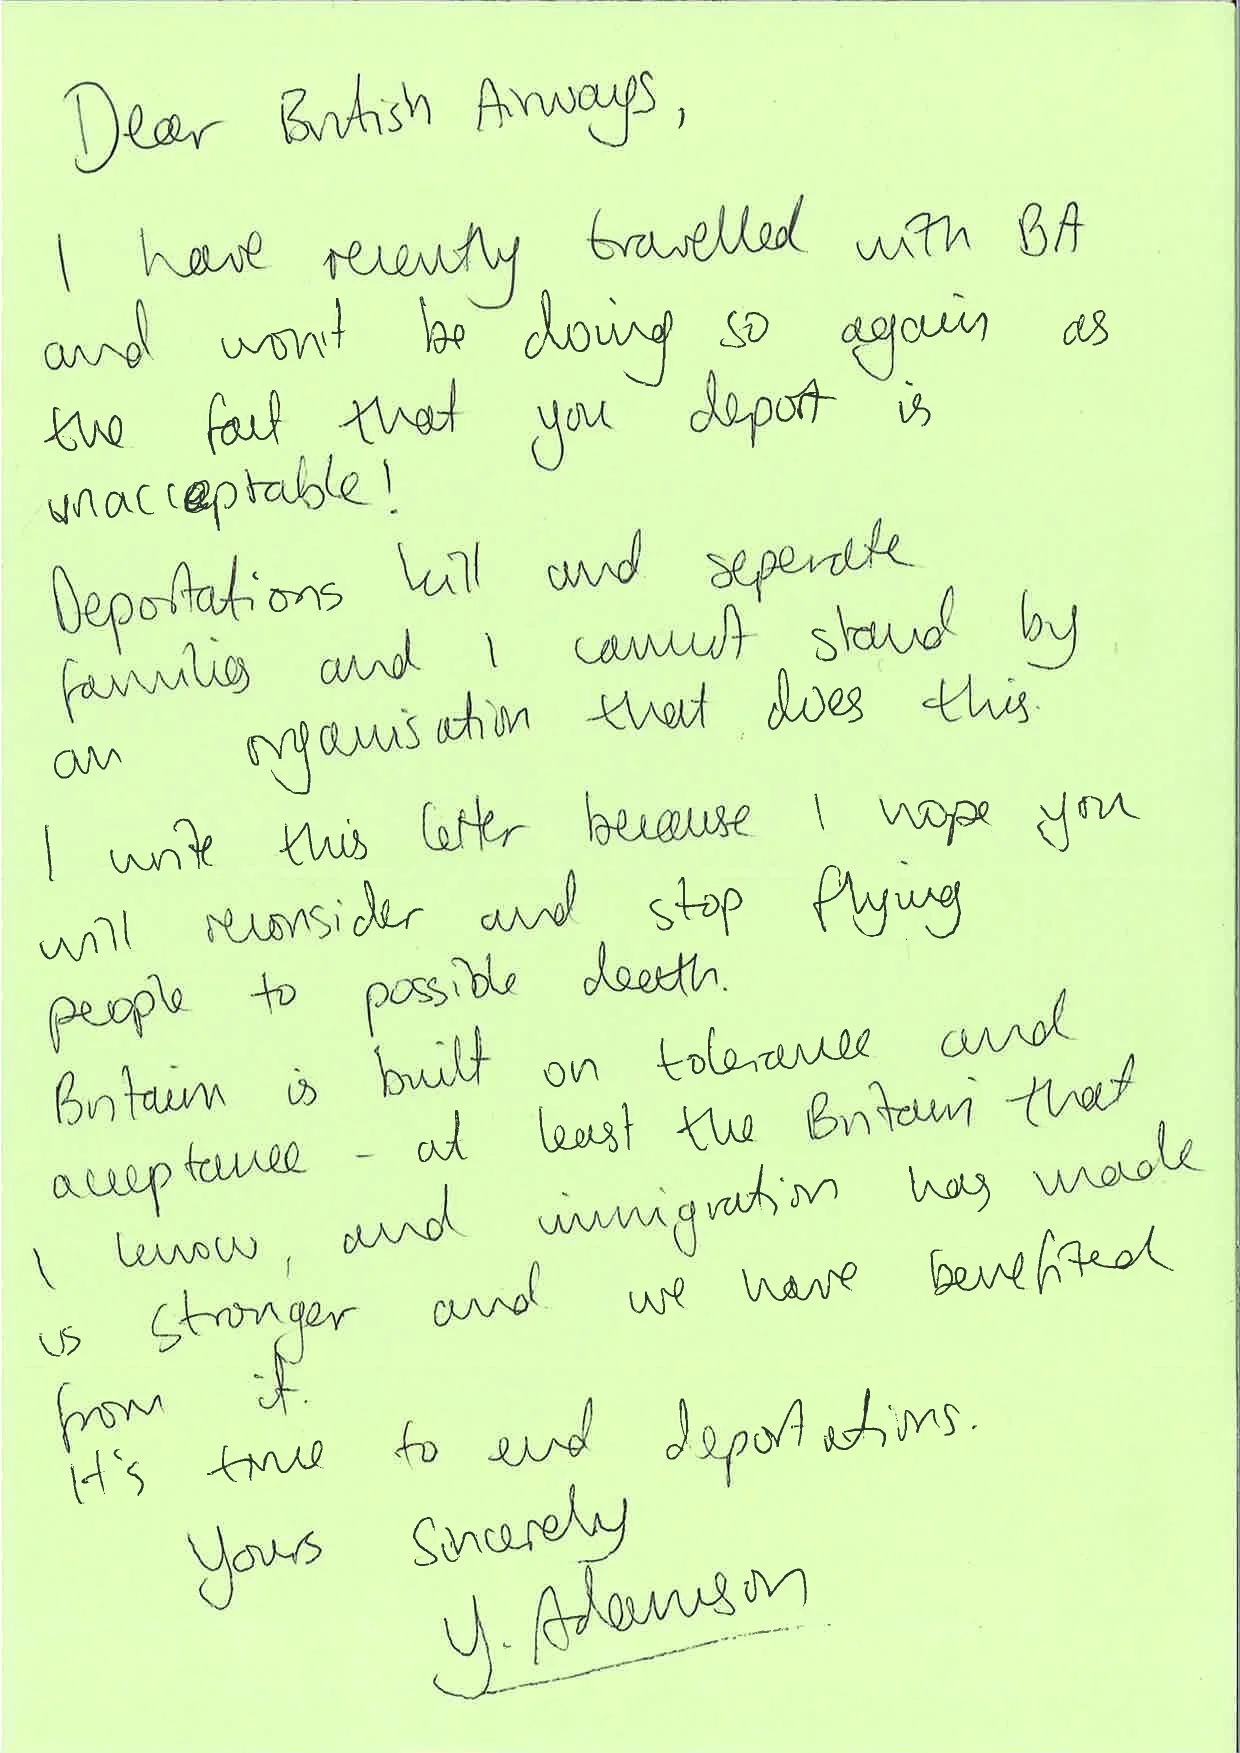 Dear British Airways,
I have recently travelled with BA
and won't be doing so again as
the fact that you deport is
unacceptable!
Deportations kill and seperate
families and I cannot stand by
an organisation that does this.
I write this letter because I hope you
will reconsider and stop flying
people to possible death.
Britain is built on tolerance and
acceptance - at least the Britain that
I know, and immigration has made
us stronger and we have benefited
from it.
It's time to end deportations.
Yours Sincerely
Y. Adamson